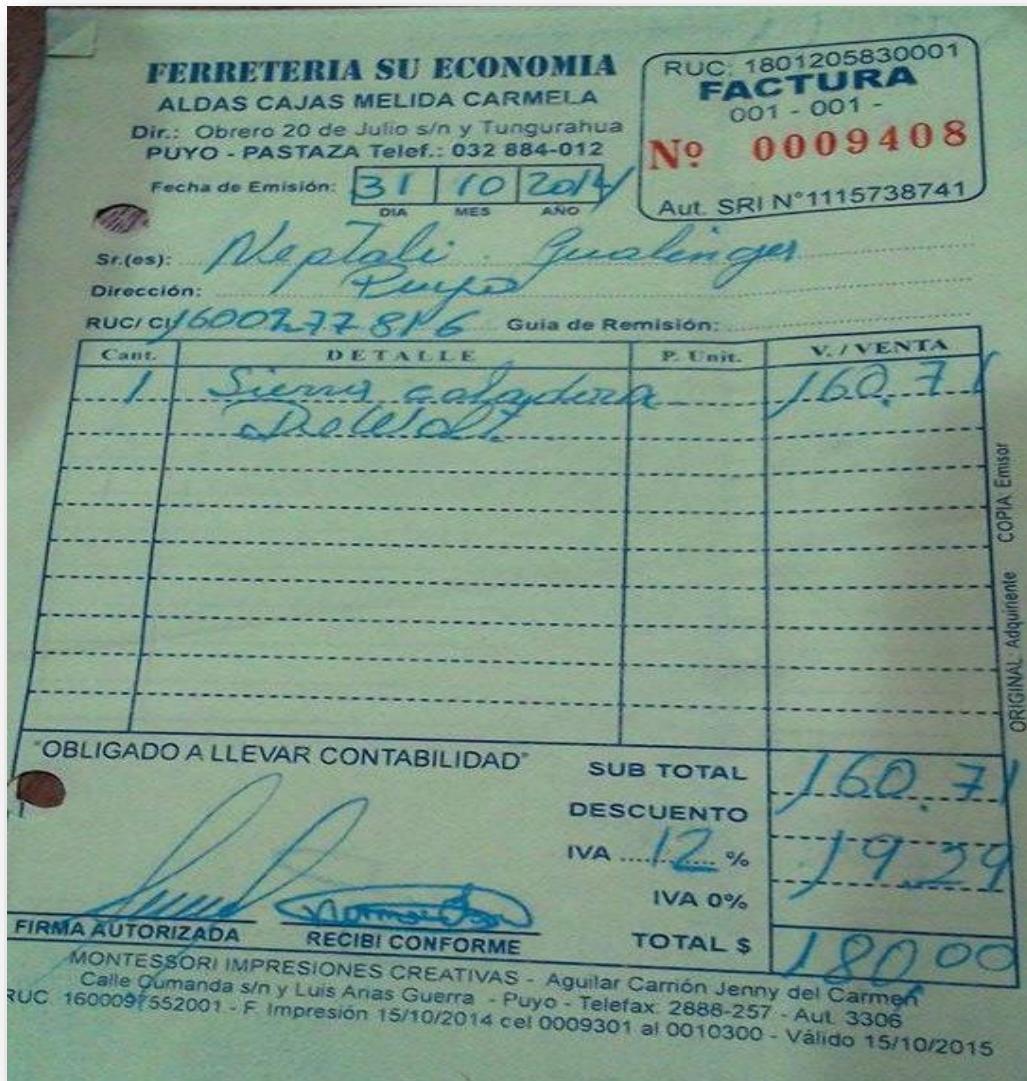 FERRETERIA SU ECONOMIA
ALDAS CAJAS MELIDA CARMELA
Dir.: Obrero 20 de Julio s/n y Tungurahua
PUYO - PASTAZA Telef.: 032 884-012
RUC: 1801205830001
FACTURA
001 - 001 -
Nº 0009408
Aut. SRI N°1115738741
Fecha de Emisión: 31 10 2014
DIA MES AÑO
Sr.(es): Neptali Gualinger
Dirección: Puyo
RUC/ CI/ Guia de Remisión:
Cant. DETALLE P. Unit. V. / VENTA
1 Sierra caladora 160.71
DeWalt
ORIGINAL: Adquiriente COPIA Emisor
"OBLIGADO A LLEVAR CONTABILIDAD"
SUB TOTAL 160.71
DESCUENTO
IVA ....12.... % 19.29
IVA 0%
TOTAL $ 180,00
FIRMA AUTORIZADA RECIBI CONFORME
MONTESSORI IMPRESIONES CREATIVAS - Aguilar Carrión Jenny del Carmen
Calle Cumanda s/n y Luis Arias Guerra - Puyo - Telefax: 2888-257 - Aut. 3306
RUC. - F. Impresión 15/10/2014 cel 0009301 al 0010300 - Válido 15/10/2015